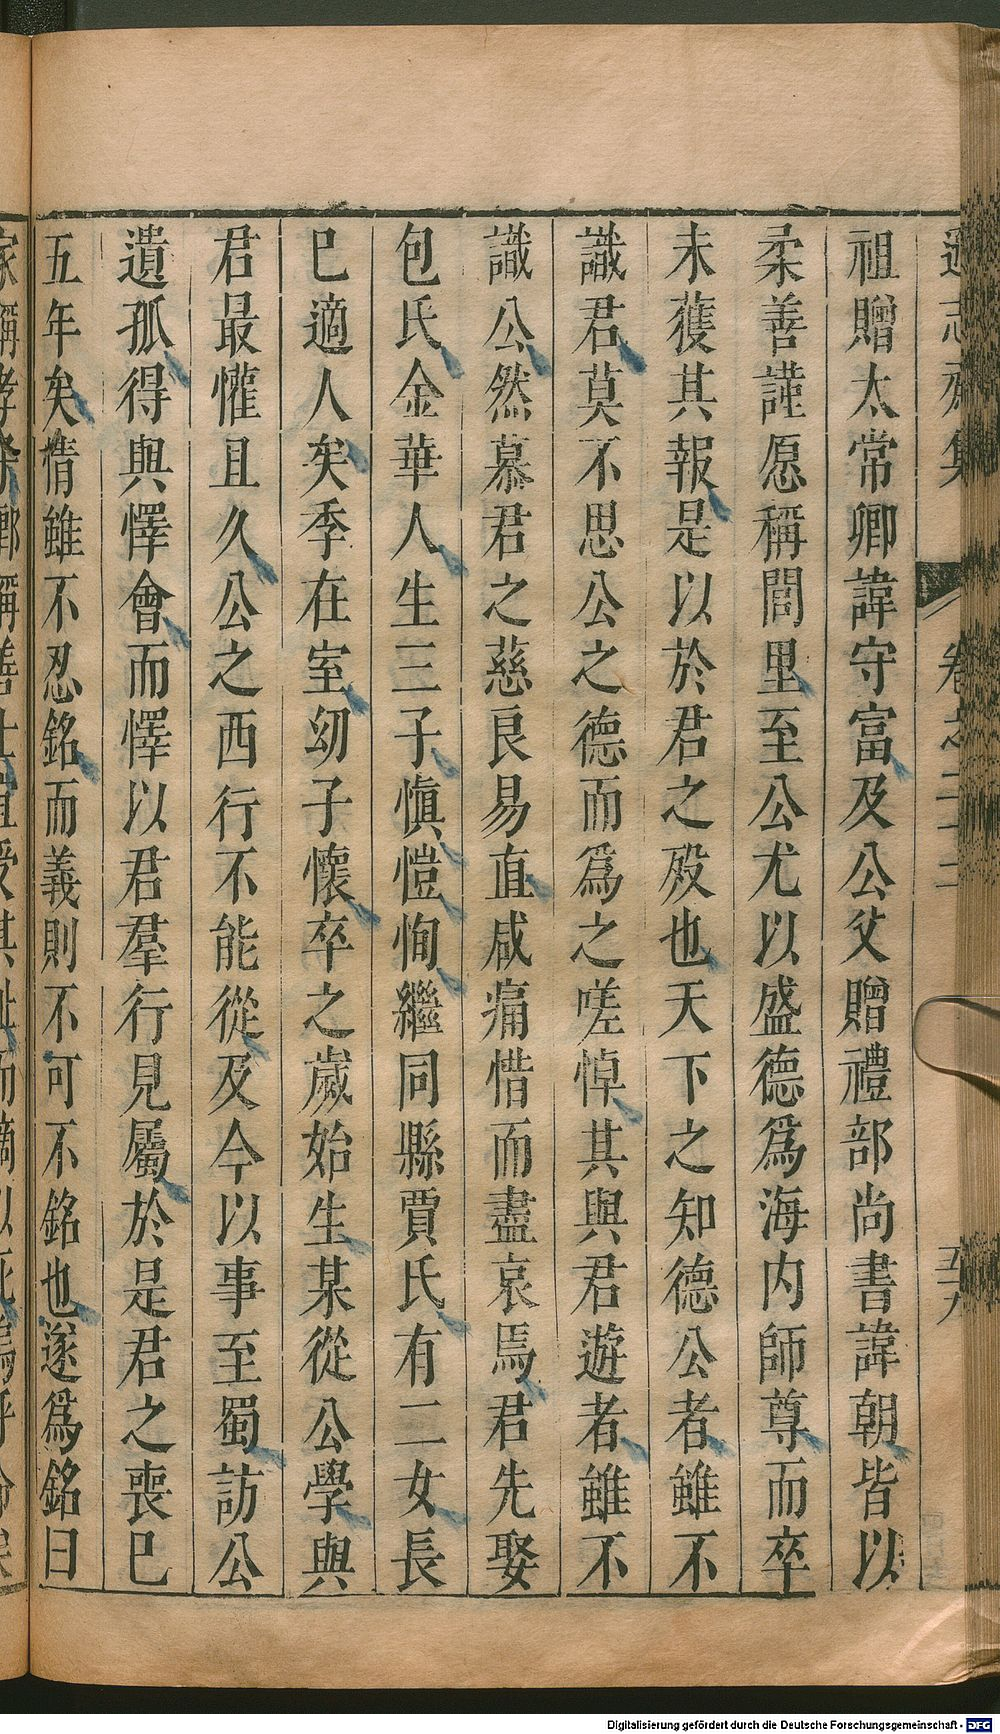 遜志齋集 卷之二十二 五十九
祖贈太常卿諱守富及公父贈禮部尚書諱朝皆以
柔善謹愿稱閭里至公尤以盛德爲海内師尊而卒
未獲其報是以於君之殁也天下之知德公者雖不
識君莫不思公之德而爲之嗟悼其與君遊者雖不
識公然慕君之慈良易直咸痛惜而盡哀焉君先娶
包氏金華人生三子愼愷恂繼同縣賈氏有二女長
巳適人矣季在室幼子懷卒之歲始生某從公學與
君最懽且久公之西行不能從及今以事至蜀訪公
遺孤得與懌會而懌以君羣行見屬於是君之喪巳
五年矣情雖不忍銘而義則不可不銘也遂爲銘曰
Digitalisierung gefördert durch die Deutsche Forschungsgemeinschaft - DFG